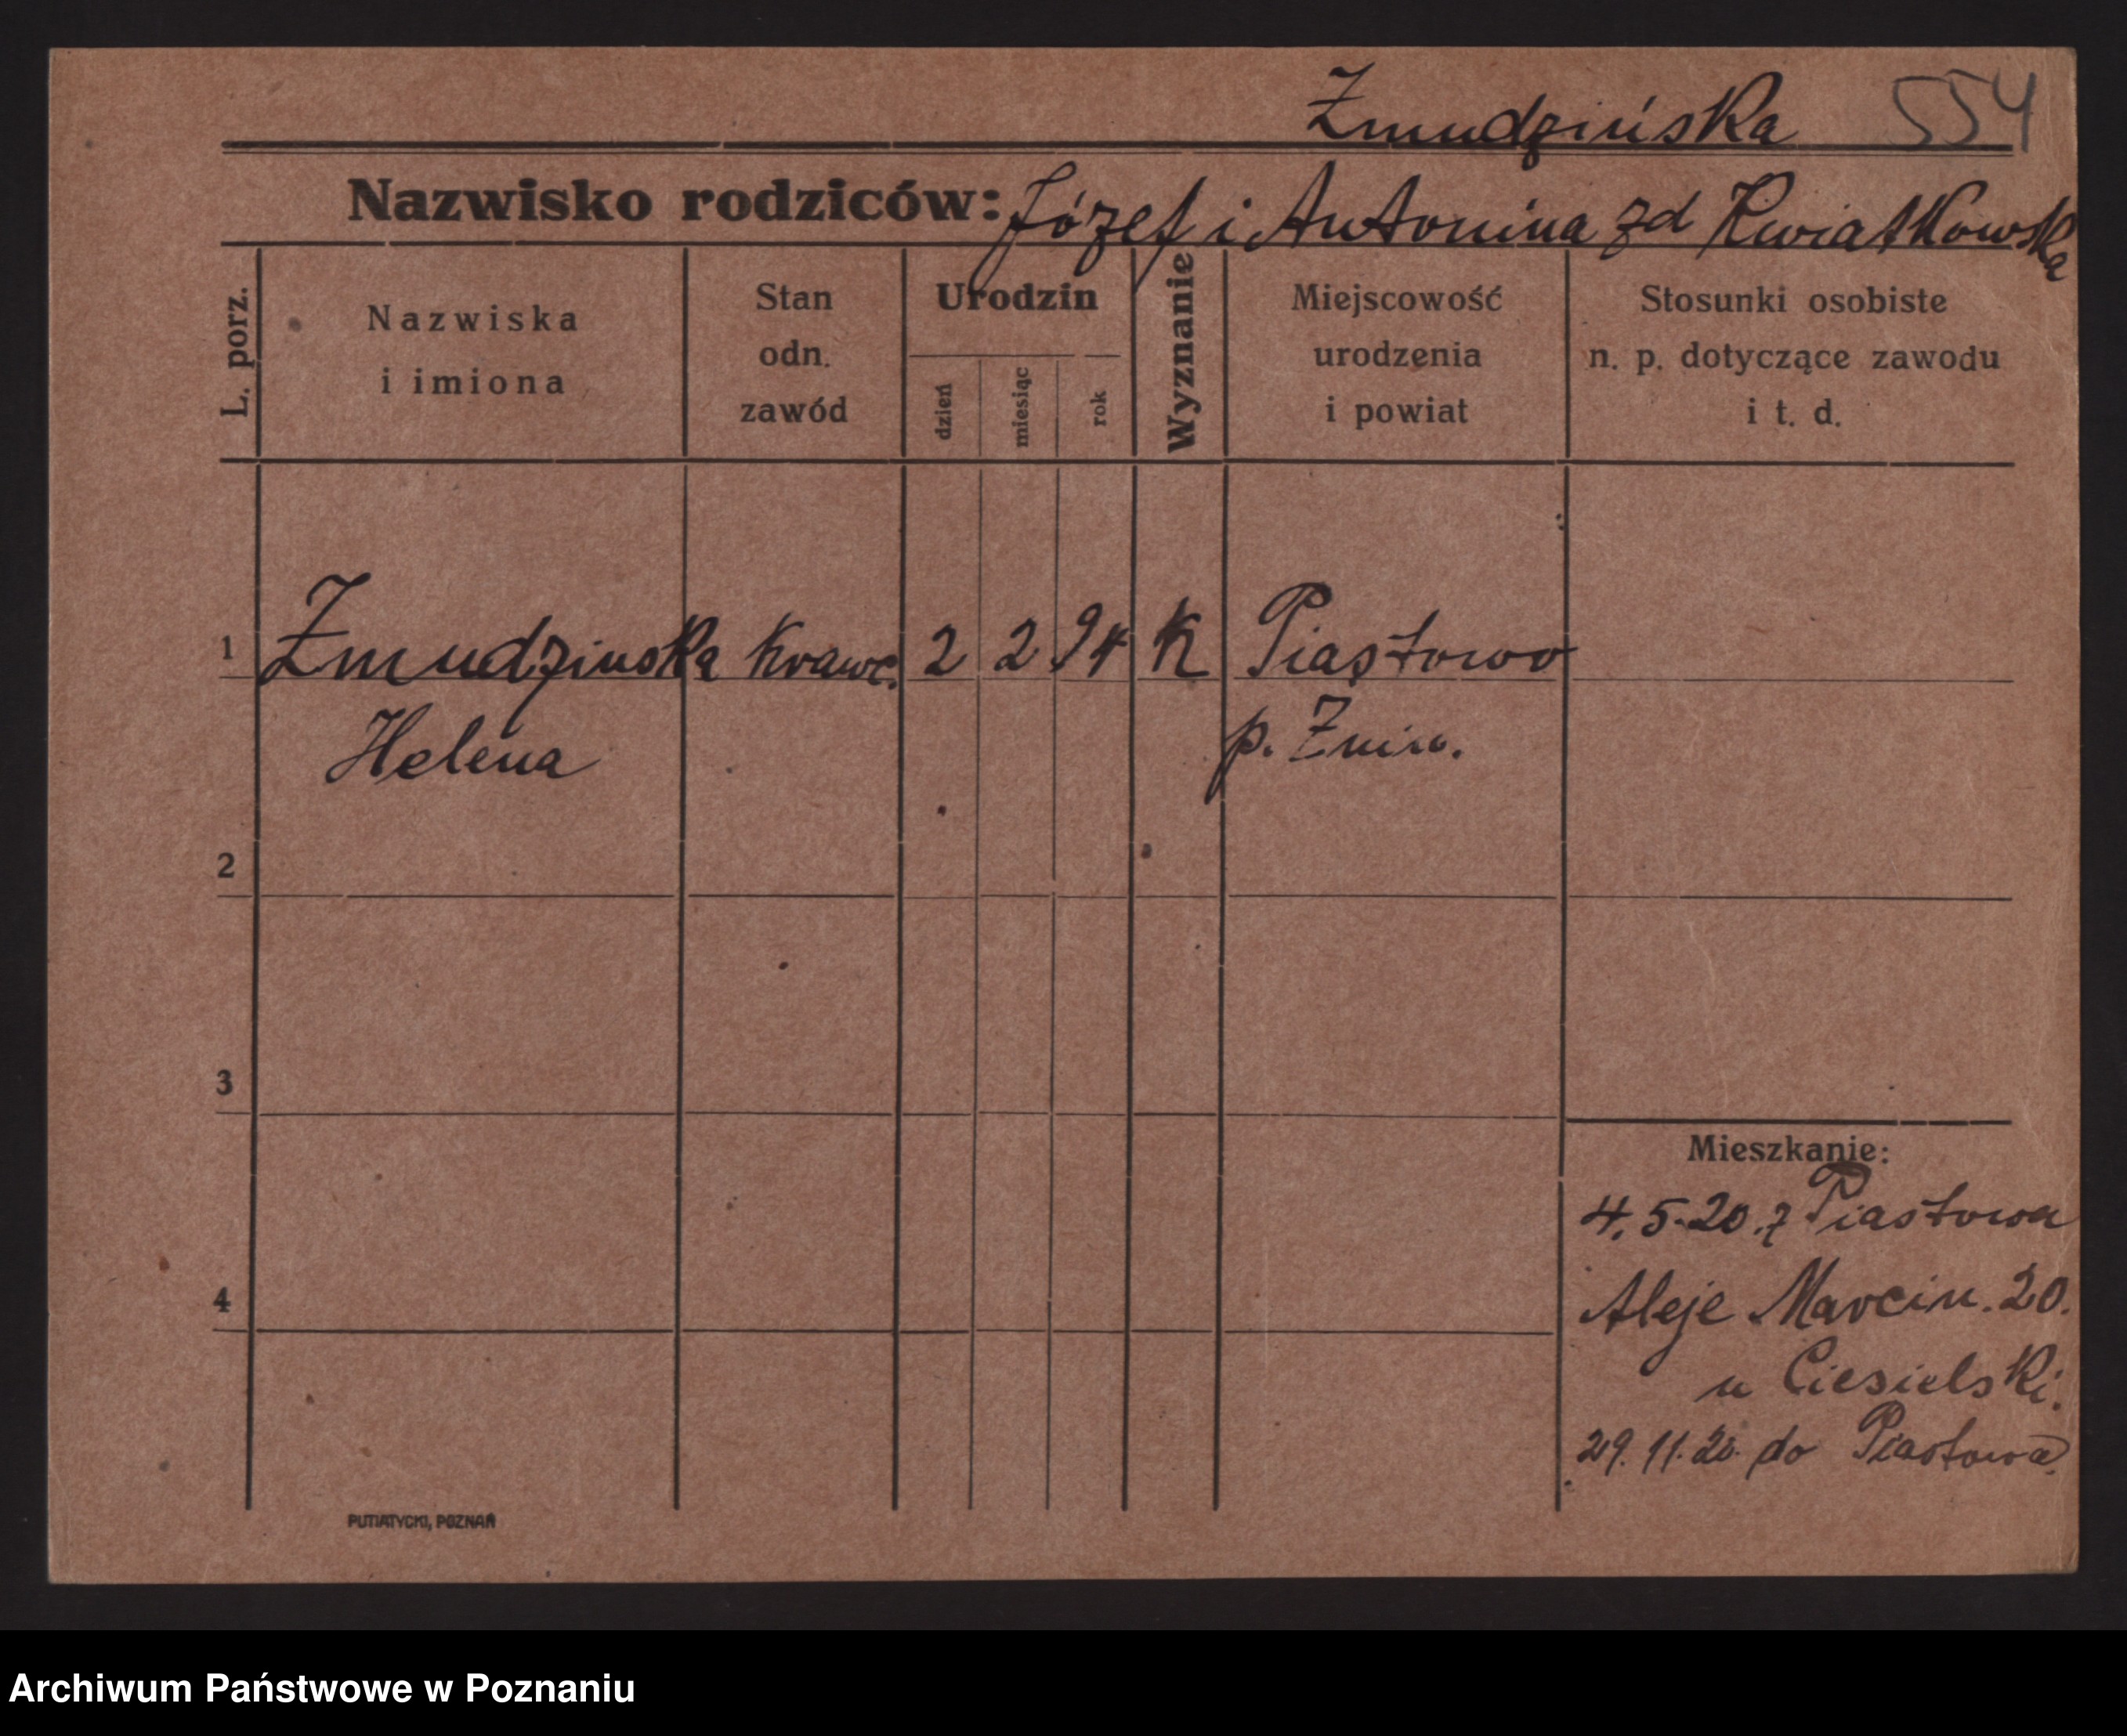 Żmudzińska 554
Nazwisko rodziców: Józef i Antonina zd Kwiatkowska
L. porz.
Nazwiska
i imiona
Stan
odn.
zawód
Urodzin
dzień
miesiąc
rok
Wyznanie
Miejscowość
urodzenia
i powiat
Stosunki osobiste
n. p. dotyczące zawodu
i t. d.
1 Żmudzinska Krawc. 2 2 94 K Piastowo
Helena p. Żnin.
2
3
4
Mieszkanie:
4.5.20. z Piastowa
Aleje Marcin. 20.
u Ciesielski.
29.11.20. do Piastowa.
PUTIATYCKI, POZNAŃ
Archiwum Państwowe w Poznaniu